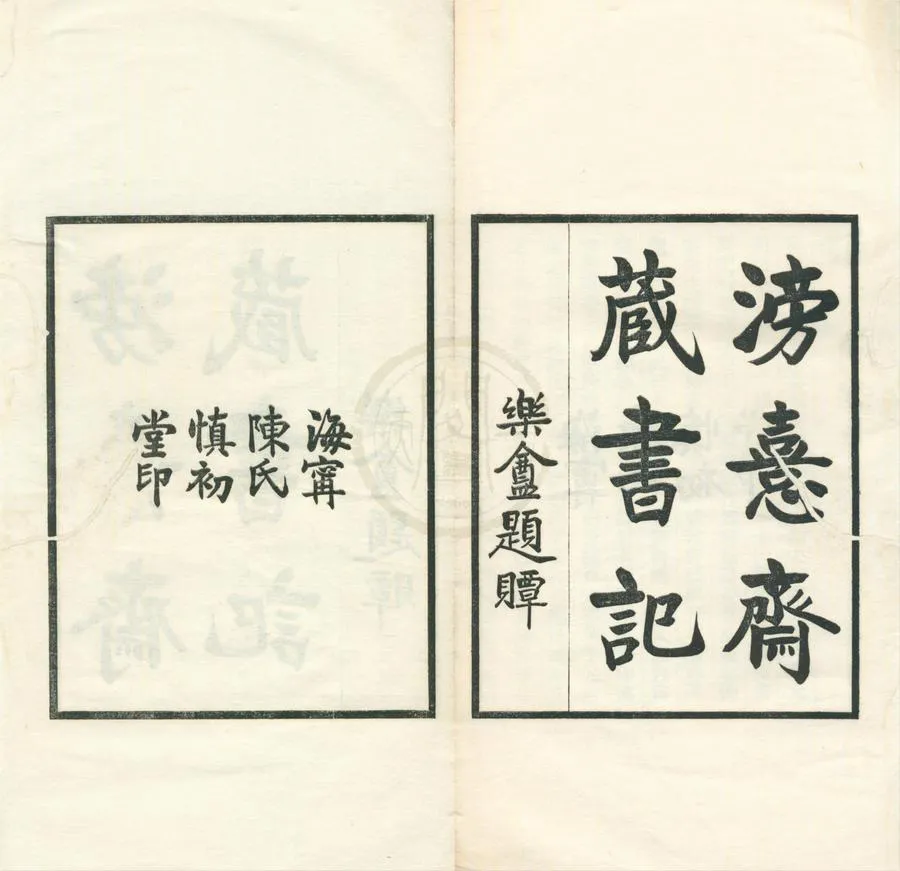 滂憙齋
藏書記
樂盦題贉
海寗
陳氏
慎初
堂印